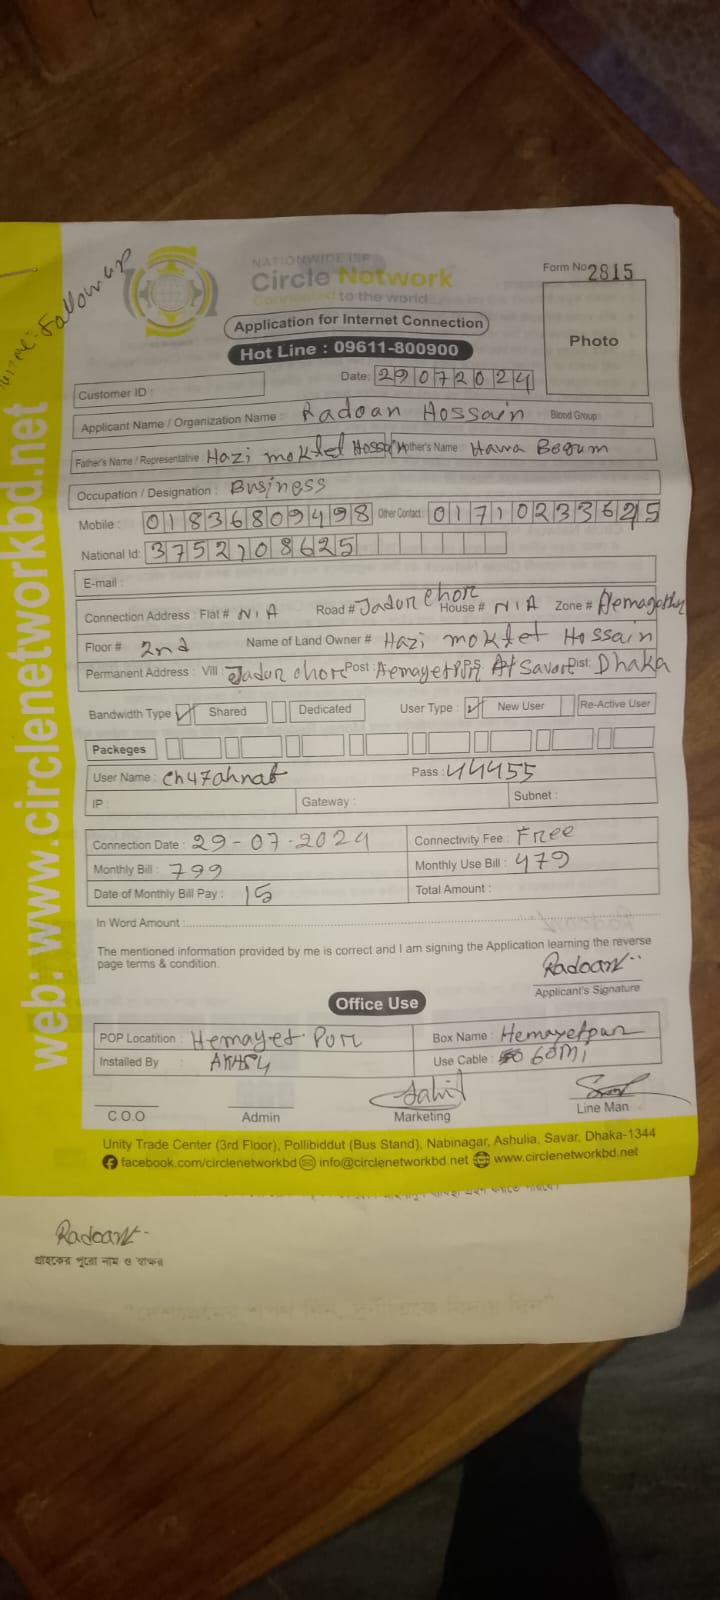 Follow up
NATIONWIDE ISP
Circle Network
Connected to the world
Form No 2815
Application for Internet Connection
Photo
Hot Line : 09611-800900
Date: 29072024
Customer ID :
Applicant Name / Organization Name : Radoan Hossain Blood Group
Father's Name / Representative Hazi moktet Hossain Mother's Name : Hawa Begum
Occupation / Designation : Business
Mobile : 01836809498 Other Contact : 0171023362
National Id: 3752108625
E-mail :
Connection Address : Flat # N/A Road # Jadur chor House # N/A Zone #
Floor # 2nd Name of Land Owner # Hazi moktet Hossain
Permanent Address : Vill : Jadur chor Post : Dist: Dhaka
Bandwidth Type ✓ Shared Dedicated User Type : ✓ New User Re-Active User
Packeges
User Name : Ch47ahnaf Pass : 44455
IP : Gateway : Subnet :
Connection Date : 29-07-2024 Connectivity Fee : Free
Monthly Bill : 799 Monthly Use Bill : 479
Date of Monthly Bill Pay : 15 Total Amount :
In Word Amount :
The mentioned information provided by me is correct and I am signing the Application learning the reverse
page terms & condition.
Radoan
Applicant's Signature
Office Use
POP Locatition : Hemayet Pur Box Name : Hemayetpur
Installed By : Use Cable : 60mi
C.O.O Admin Marketing Line Man
Unity Trade Center (3rd Floor), Pollibiddut (Bus Stand), Nabinagar, Ashulia, Savar, Dhaka-1344
facebook.com/circlenetworkbd info@circlenetworkbd.net www.circlenetworkbd.net
web: www.circlenetworkbd.net
Radoan
গ্রাহকের পুরো নাম ও স্বাক্ষর